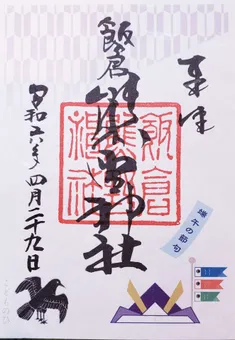 奉拝
飯倉
熊野神社
飯倉熊野神社
令和六年四月二十九日
端午の節句
こどものひ